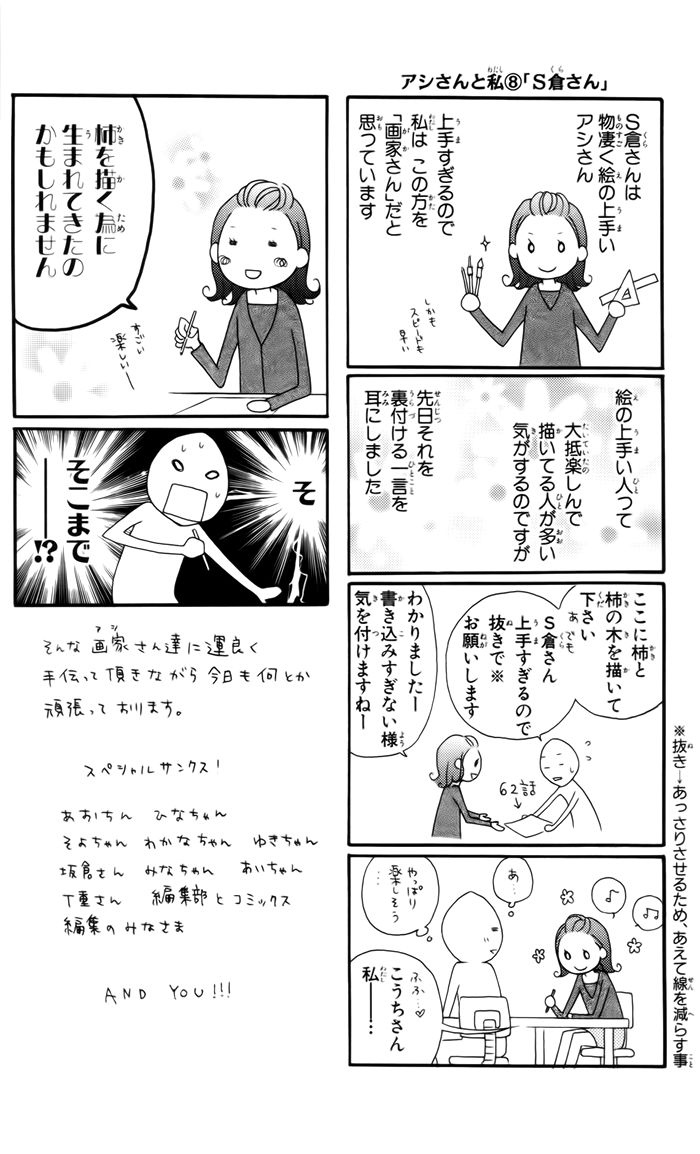 アシさんと私⑧「S倉さん」
S倉さんは
物凄く絵の上手い
アシさん
上手すぎるので
私は この方を
「画家さん」だと
思っています
しかも
スピードも
早い
絵の上手い人つて
大抵楽しんで
描いてる人が多い
気がするのですが
先日それを
裏付ける一言を
耳にしました
ここに柿と
柿の木を描いて
下さい
あ でも
S倉さん
上手すぎるので
抜きで※
お願いします
わかりましたー
書き込みすぎない様
気を付けますねー
62話
※抜き→あっさりさせるため、あえて線を減らす事
あ…
やっぱり
楽しそう
…
ふふ…♡
こうちさん
私――…
柿を描く為に
生まれてきたの
かもしれません
すごい
楽しいー
そ
そこまで
――!?
そんな 画家さん達に 運良く
手伝って 頂きながら 今日も 何とか
頑張って おります。
スペシャルサンクス!
あおちん ひなちゃん
そよちゃん わかなちゃん ゆきちゃん
坂倉さん みなちゃん あいちゃん
T重さん 編集部とコミックス
編集のみなさま
AND YOU!!!